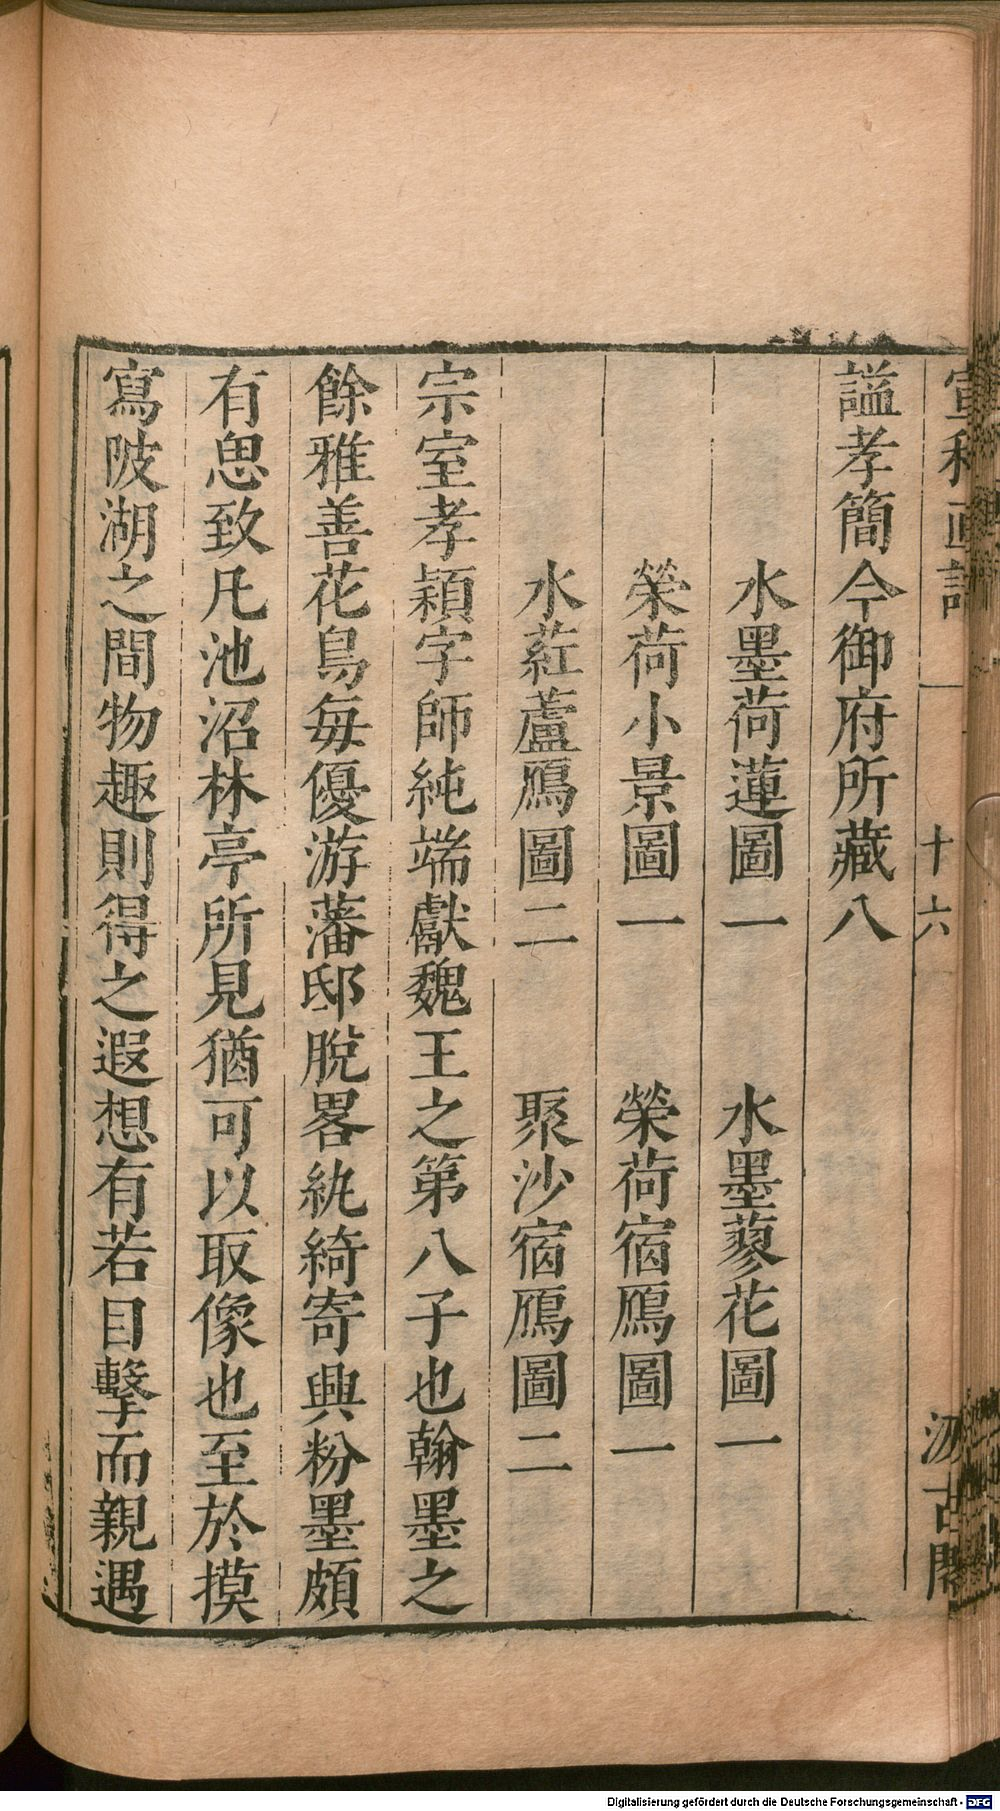 宣和畫譜
十六
汲古閣
謚孝簡今御府所藏八
水墨荷蓮圖一　水墨蓼花圖一
榮荷小景圖一　榮荷宿鴈圖一
水葒蘆鴈圖二　聚沙宿鴈圖二
宗室孝穎字師純端獻魏王之第八子也翰墨之
餘雅善花鳥每優游藩邸脫畧紈綺寄興粉墨頗
有思致凡池沼林亭所見猶可以取像也至於摸
寫陂湖之間物趣則得之遐想有若目擊而親遇
Digitalisierung gefördert durch die Deutsche Forschungsgemeinschaft - DFG